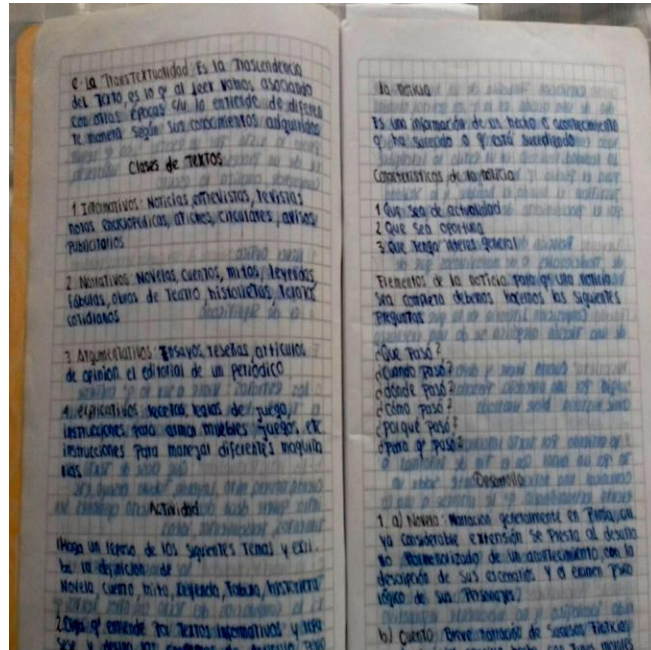 e. La TransTextualidad: Es la Trascendencia
del Texto, es lo q al leer vamos asociando
con otras épocas c/u lo entiende de diferen
te manera según sus conocimientos adquiridos
Clases de Textos
1. Informativos: Noticias, entrevistas, revistas
notas enciclopédicas, afiches, circulares, avisos
Publicitarios
2. Narrativos: Novelas, cuentos, mitos, leyendas,
fábulas, obras de Teatro, historietas, relatos
cotidianos
3. Argumentativos: Ensayos, reseñas, artículos
de opinión el editorial de un periódico
4. explicativos: recetas, reglas de juego,
instrucciones para armar muebles, juegos, etc
instrucciones para manejar diferentes maquina
rias
Actividad
1 Haga un repaso de los siguientes Temas y escri
be la definición de
Novela, cuento, mito, Leyenda, Fabula, historieta
2. Diga q entiende por Textos informativos y
la noticia
Es una información de un hecho o acontecimiento
q ha sucedido o q está sucediendo
Características de la noticia
1 Que sea de actualidad
2 Que sea oportuna
3 Que tenga interés general
Elementos de la noticia: para q una noticia
sea completa debemos hacernos las siguientes
Preguntas
¿Que Pasó?
¿Cuándo pasó?
¿dónde Pasó?
¿Cómo pasó?
¿porqué pasó?
¿para q pasó?
Desarrollo
1. a) Novela: Narración generalmente en Prosa, cu
ya considerable extensión se presta al desarro
llo Pormenorizado de un acontecimiento, con la
descripción de sus escenarios y el examen Psico
lógico de sus Personajes
b) Cuento: Breve narración de Sucesos Ficticios